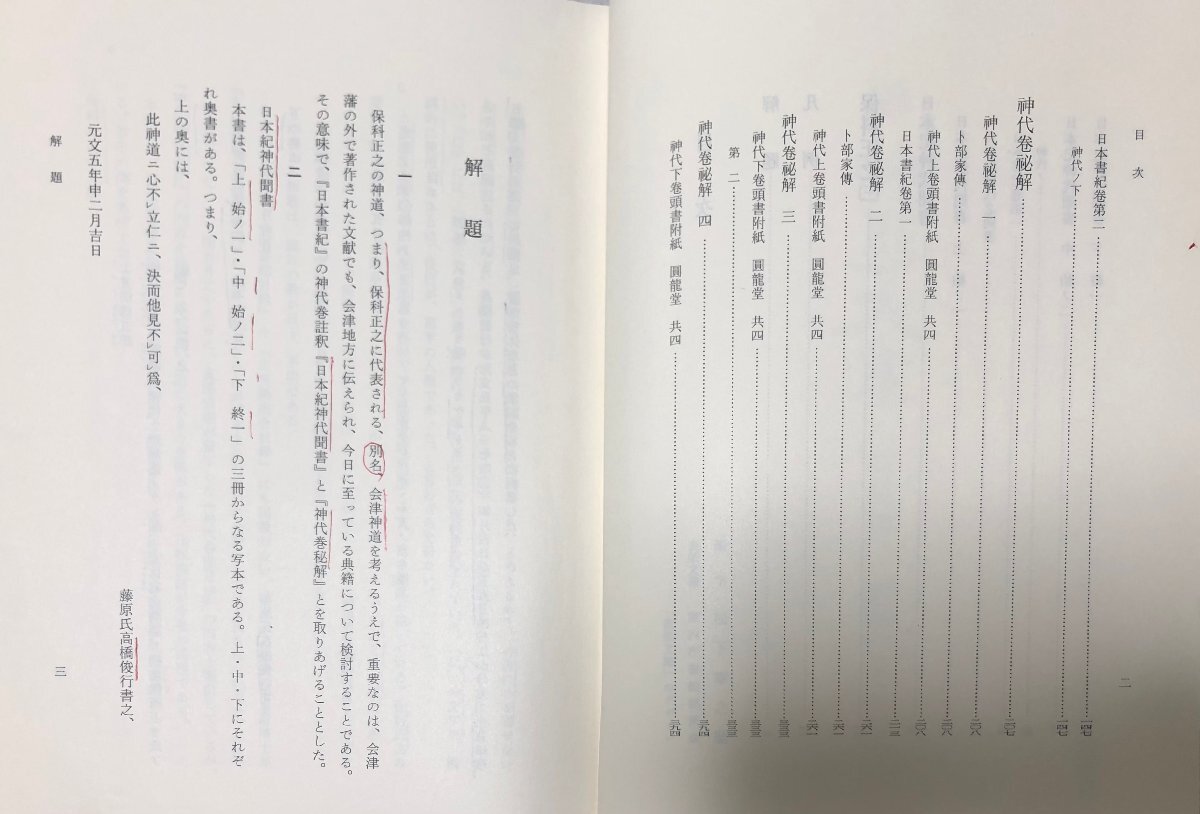 目次
日本書紀卷第二……一四七
神代ノ下……一四七
神代卷祕解……二〇七
神代卷祕解 一……二〇八
卜部家傳……二〇八
神代上卷頭書附紙 圓龍堂 共四……二〇八
日本書紀卷第一……二一三
神代卷祕解 二……二六一
卜部家傳……二六一
神代上卷頭書附紙 圓龍堂 共四……二六一
神代卷祕解 三……
神代下卷頭書附紙 圓龍堂 共四……
第二……
神代卷祕解 四……
神代下卷頭書附紙 圓龍堂 共四……
二
解題
一
保科正之の神道、つまり、保科正之に代表される、別名、会津神道を考えるうえで、重要なのは、会津
藩の外で著作された文献でも、会津地方に伝えられ、今日に至っている典籍について検討することである。
その意味で、『日本書紀』の神代巻註釈『日本紀神代聞書』と『神代巻秘解』とを取りあげることとした。
二
日本紀神代聞書
本書は、「上 始ノ一」・「中 始ノ二」・「下 終一」の三冊からなる写本である。上・中・下にそれぞ
れ奥書がある。つまり、
上の奥には、
此神道ニ心不レ立仁ニ、決而他見不レ可レ爲、
元文五年申二月吉日
藤原氏高橋俊行書之、
解題
三